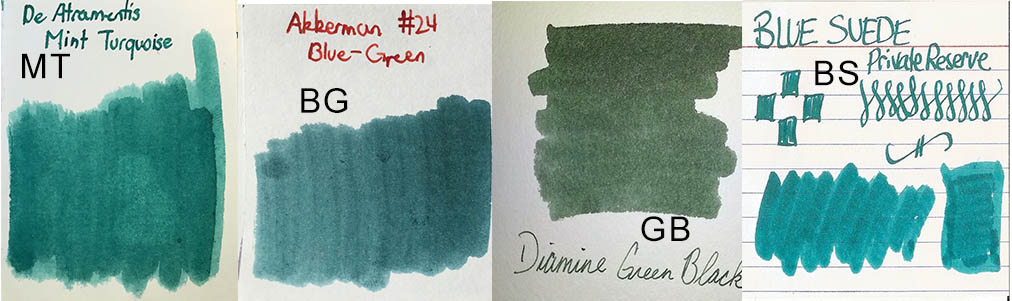 De Atramentis
Mint Turquoise
MT
Akkerman #24
Blue-Green
BG
GB
Diamine Green Black
BLUE SUEDE
Private Reserve
BS